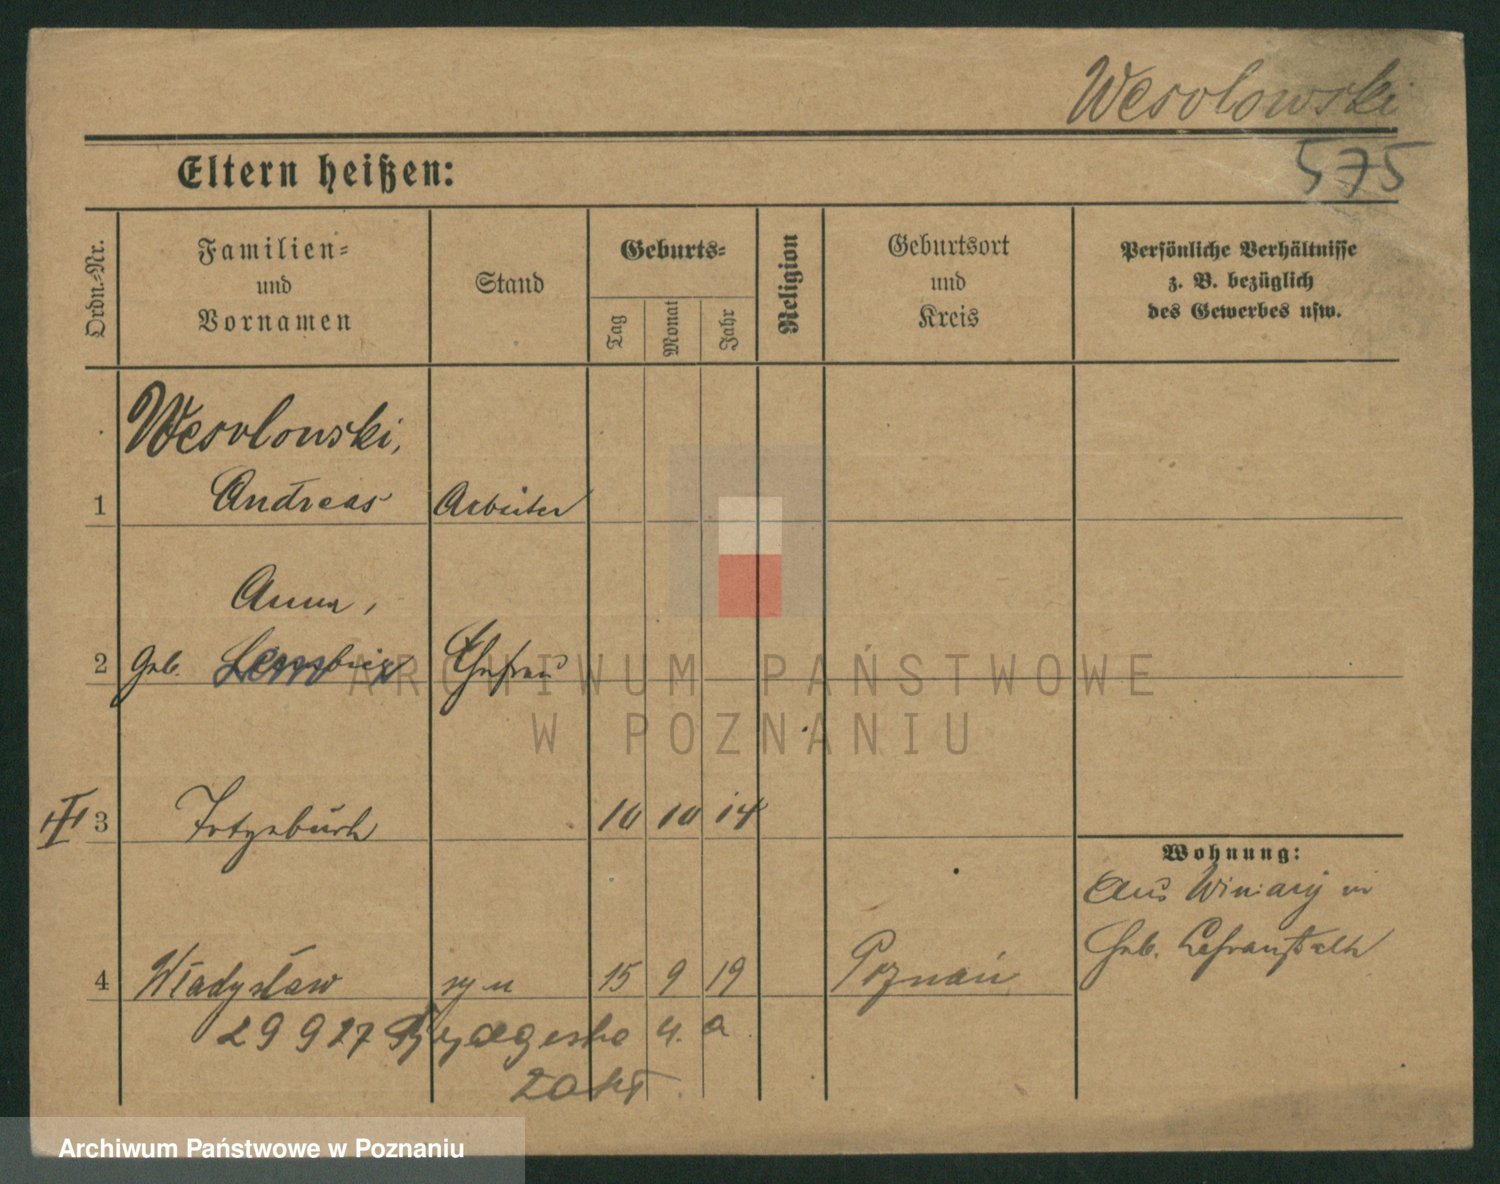 Wesolowski
575
Eltern heißen:
Ordn.-Nr.
Familien-
und
Vornamen
Stand
Geburts-
Tag
Monat
Jahr
Religion
Geburtsort
und
Kreis
Persönliche Verhältnisse
z. B. bezüglich
des Gewerbes usw.
Wesolowski,
1 Andreas Arbeiter
Anna,
2 geb. Ehefrau
ARCHIWUM PAŃSTWOWE
W POZNANIU
3 10 10 14
Wohnung:
Aus Winiary in
Geb.
4 Władysław syn 15 9 19 Poznań
29 9 27 4. a
Archiwum Państwowe w Poznaniu